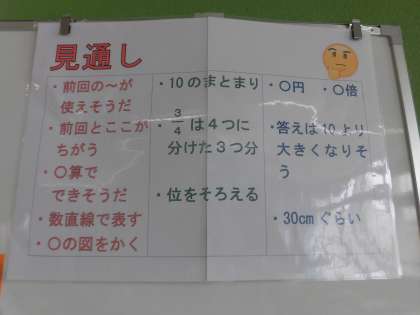 見通し
・前回の〜が
使えそうだ
・前回とここが
ちがう
・〇算で
できそうだ
・数直線で表す
・〇の図をかく
・10のまとまり
・3/4は４つに
分けた３つ分
・位をそろえる
・〇円 ・〇倍
・答えは10より
大きくなりそ
う
・30cmぐらい